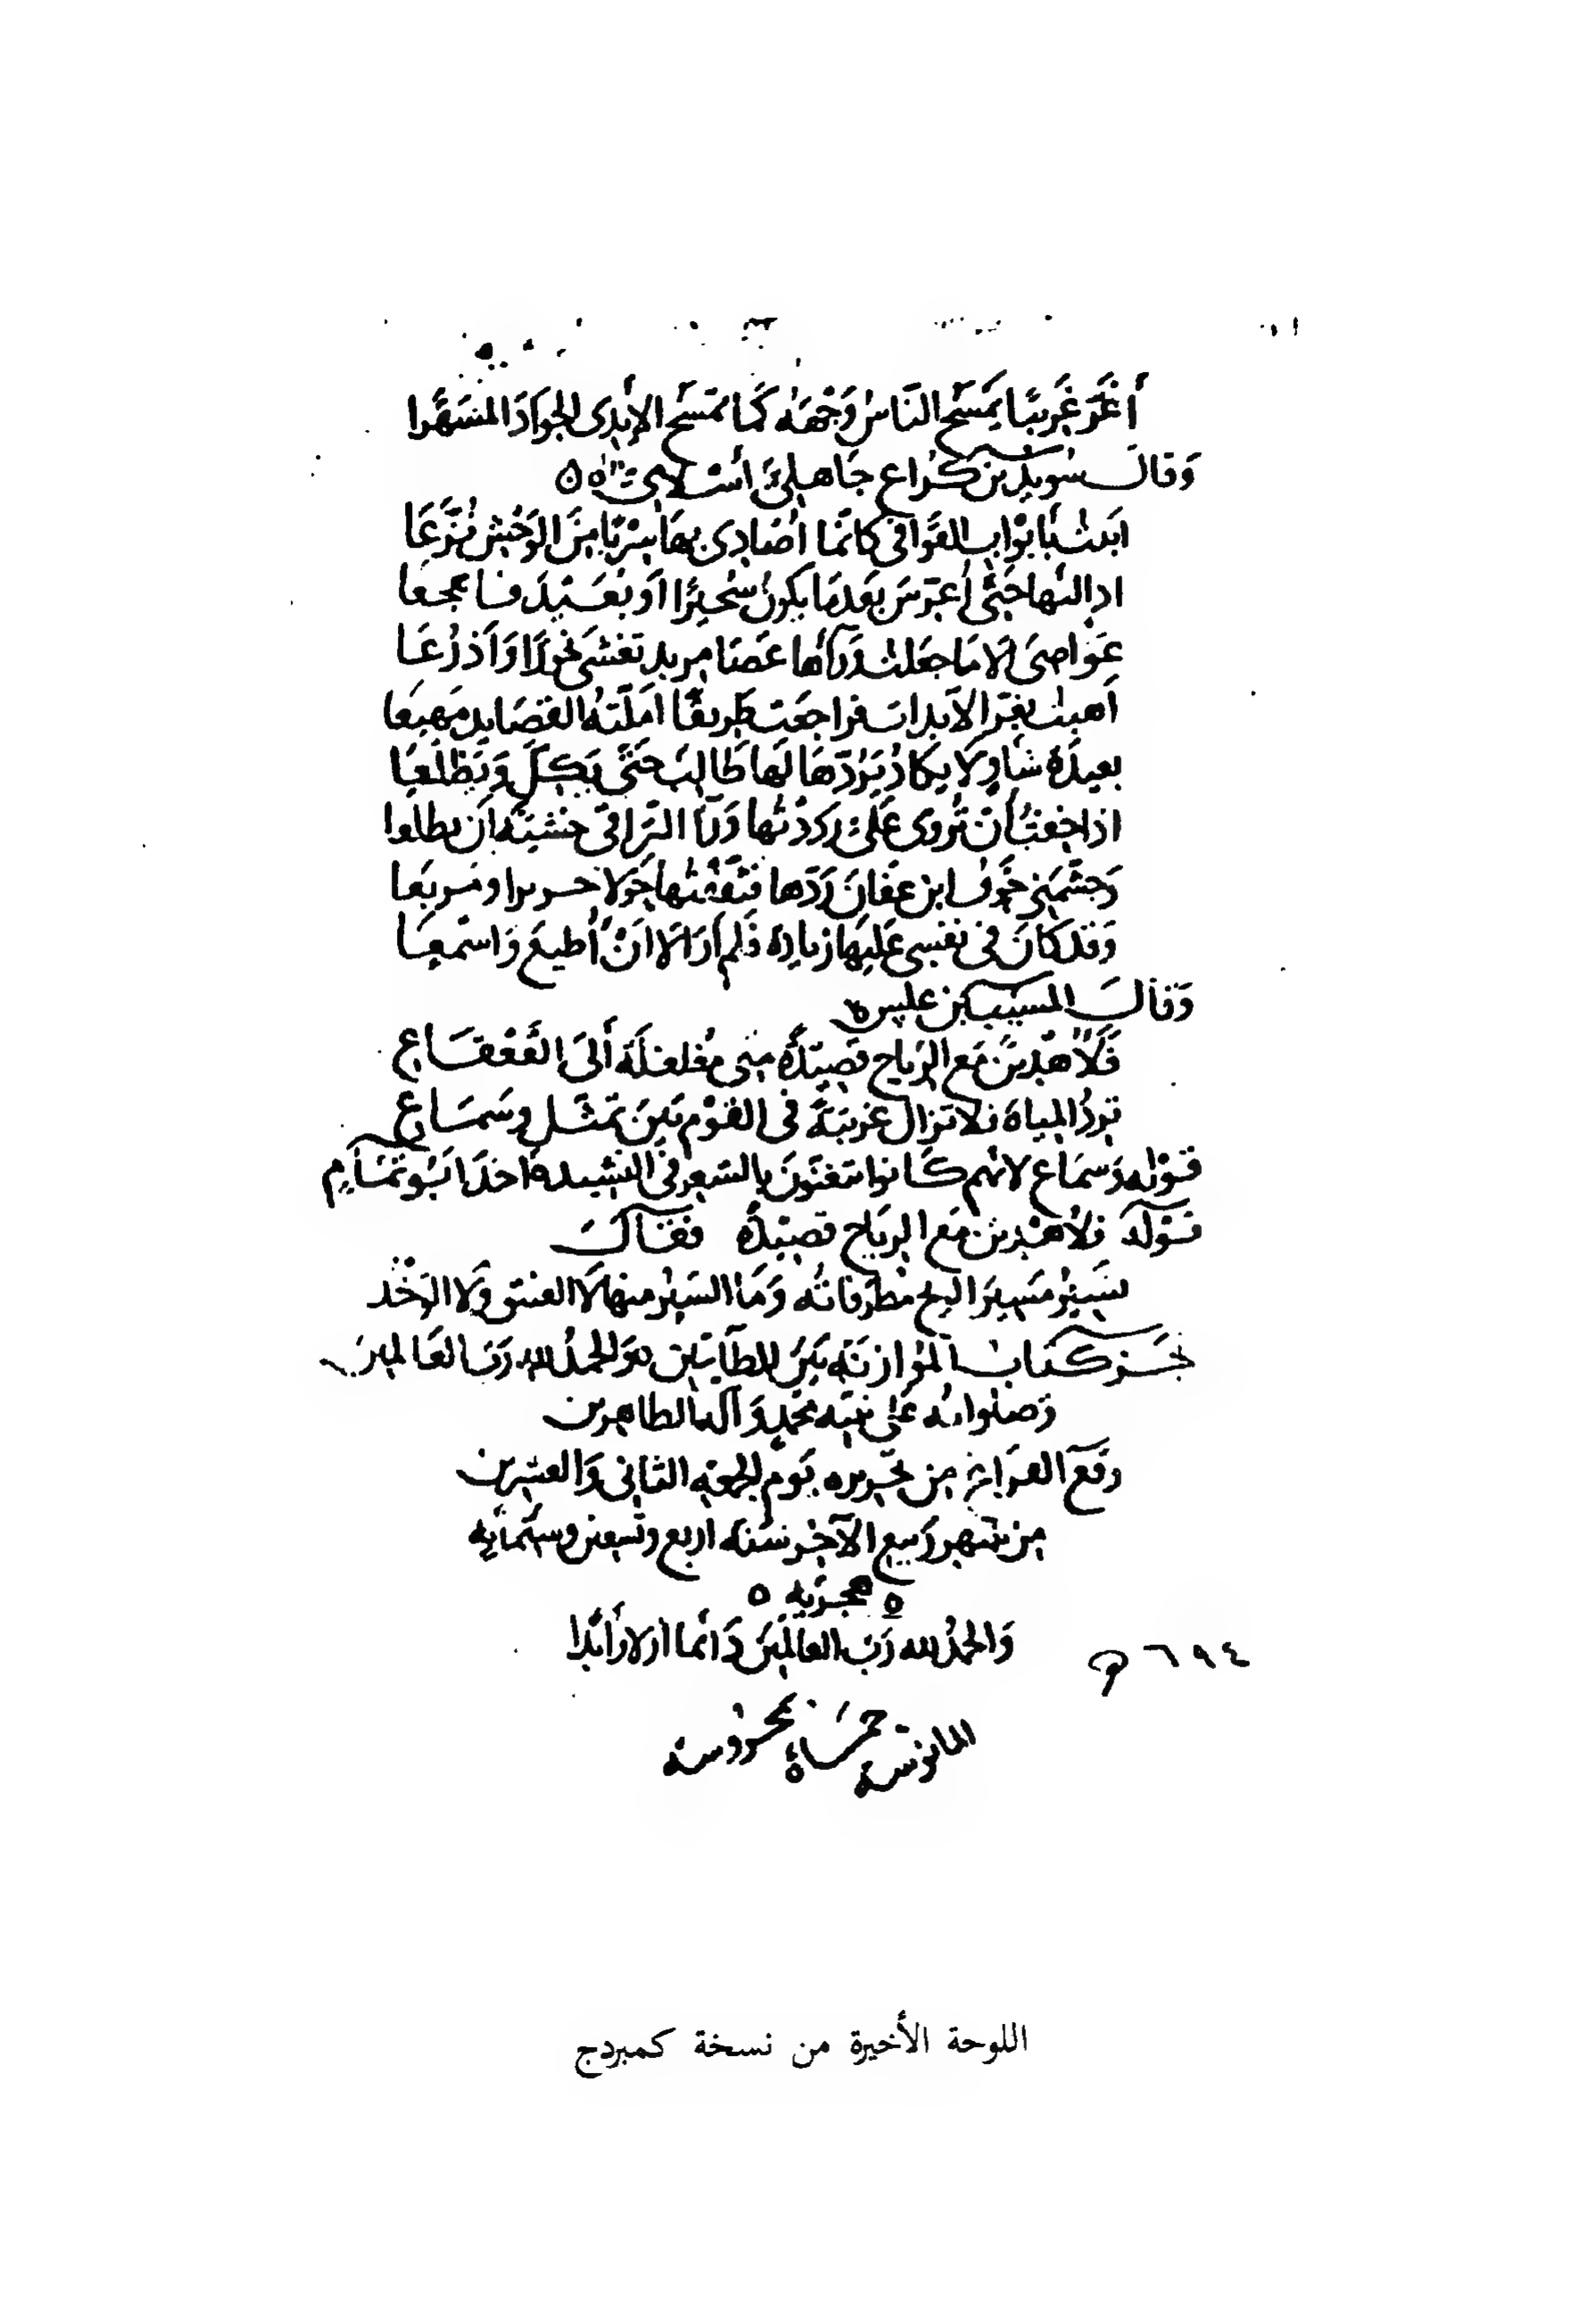 أغر غريبا يمسح الناس وجهه كما تمسح الايدى الجواد المشهرا
وقال سويد بن كراع جاهلي اسلامي
ابيت بابواب القوافى كانما اصادى بها سربا من الوحش نزعا
اكالئها حتى اعرس بعدما يكون سحيرا او بعيد فاهجعا
عواصى الا ما جعلت وراها عصا مربد تغشى نحورا واذرعا
اهبت بغر الابدات فراجعت طريقا املته القصايد مهيعا
بعيدة شاو لا يكاد يردها لها طالب حتى يكل ويظلعا
اذا خفت أن تروى على رددتها ورا التراقى خشية ان تطلعا
وجشمنى خوف ابن عفان ردها فثقفتها حولا جريدا ومربعا
وقد كان فى نفسى عليها زيادة فلم ار الا ان أطيع واسمعا
وقال المسيب بن علس
فلأهدين مع الرياح قصيدة منى مغلغلة ألى القعقاع
ترد المياه فلا تزال غريبة فى القوم بين تمثل وسماع
قوله وسماع لانهم كانوا يتغنون بالشعر فى النشيد اخذ ابو تمام
قوله فلأهدين مع الرياح قصيدة فقال
يسير مسير الريح مطرفاته وما السير منها لا العنق ولا الوخد
نجز كتاب الموازنة بين الطايين والحمد لله رب العالمين
وصلواته على نبيه محمد وآله الطاهرين
وقع الفراغ من تحريره يوم الجمعه الثانى والعشرين
من شهر ربيع الآخر سنه اربع وتسعين وستمايه
هجريه
والحمد لله رب العالمين دائما ازلا وأبدا
٦٩٤
اللوحة الأخيرة من نسخة كمبردج